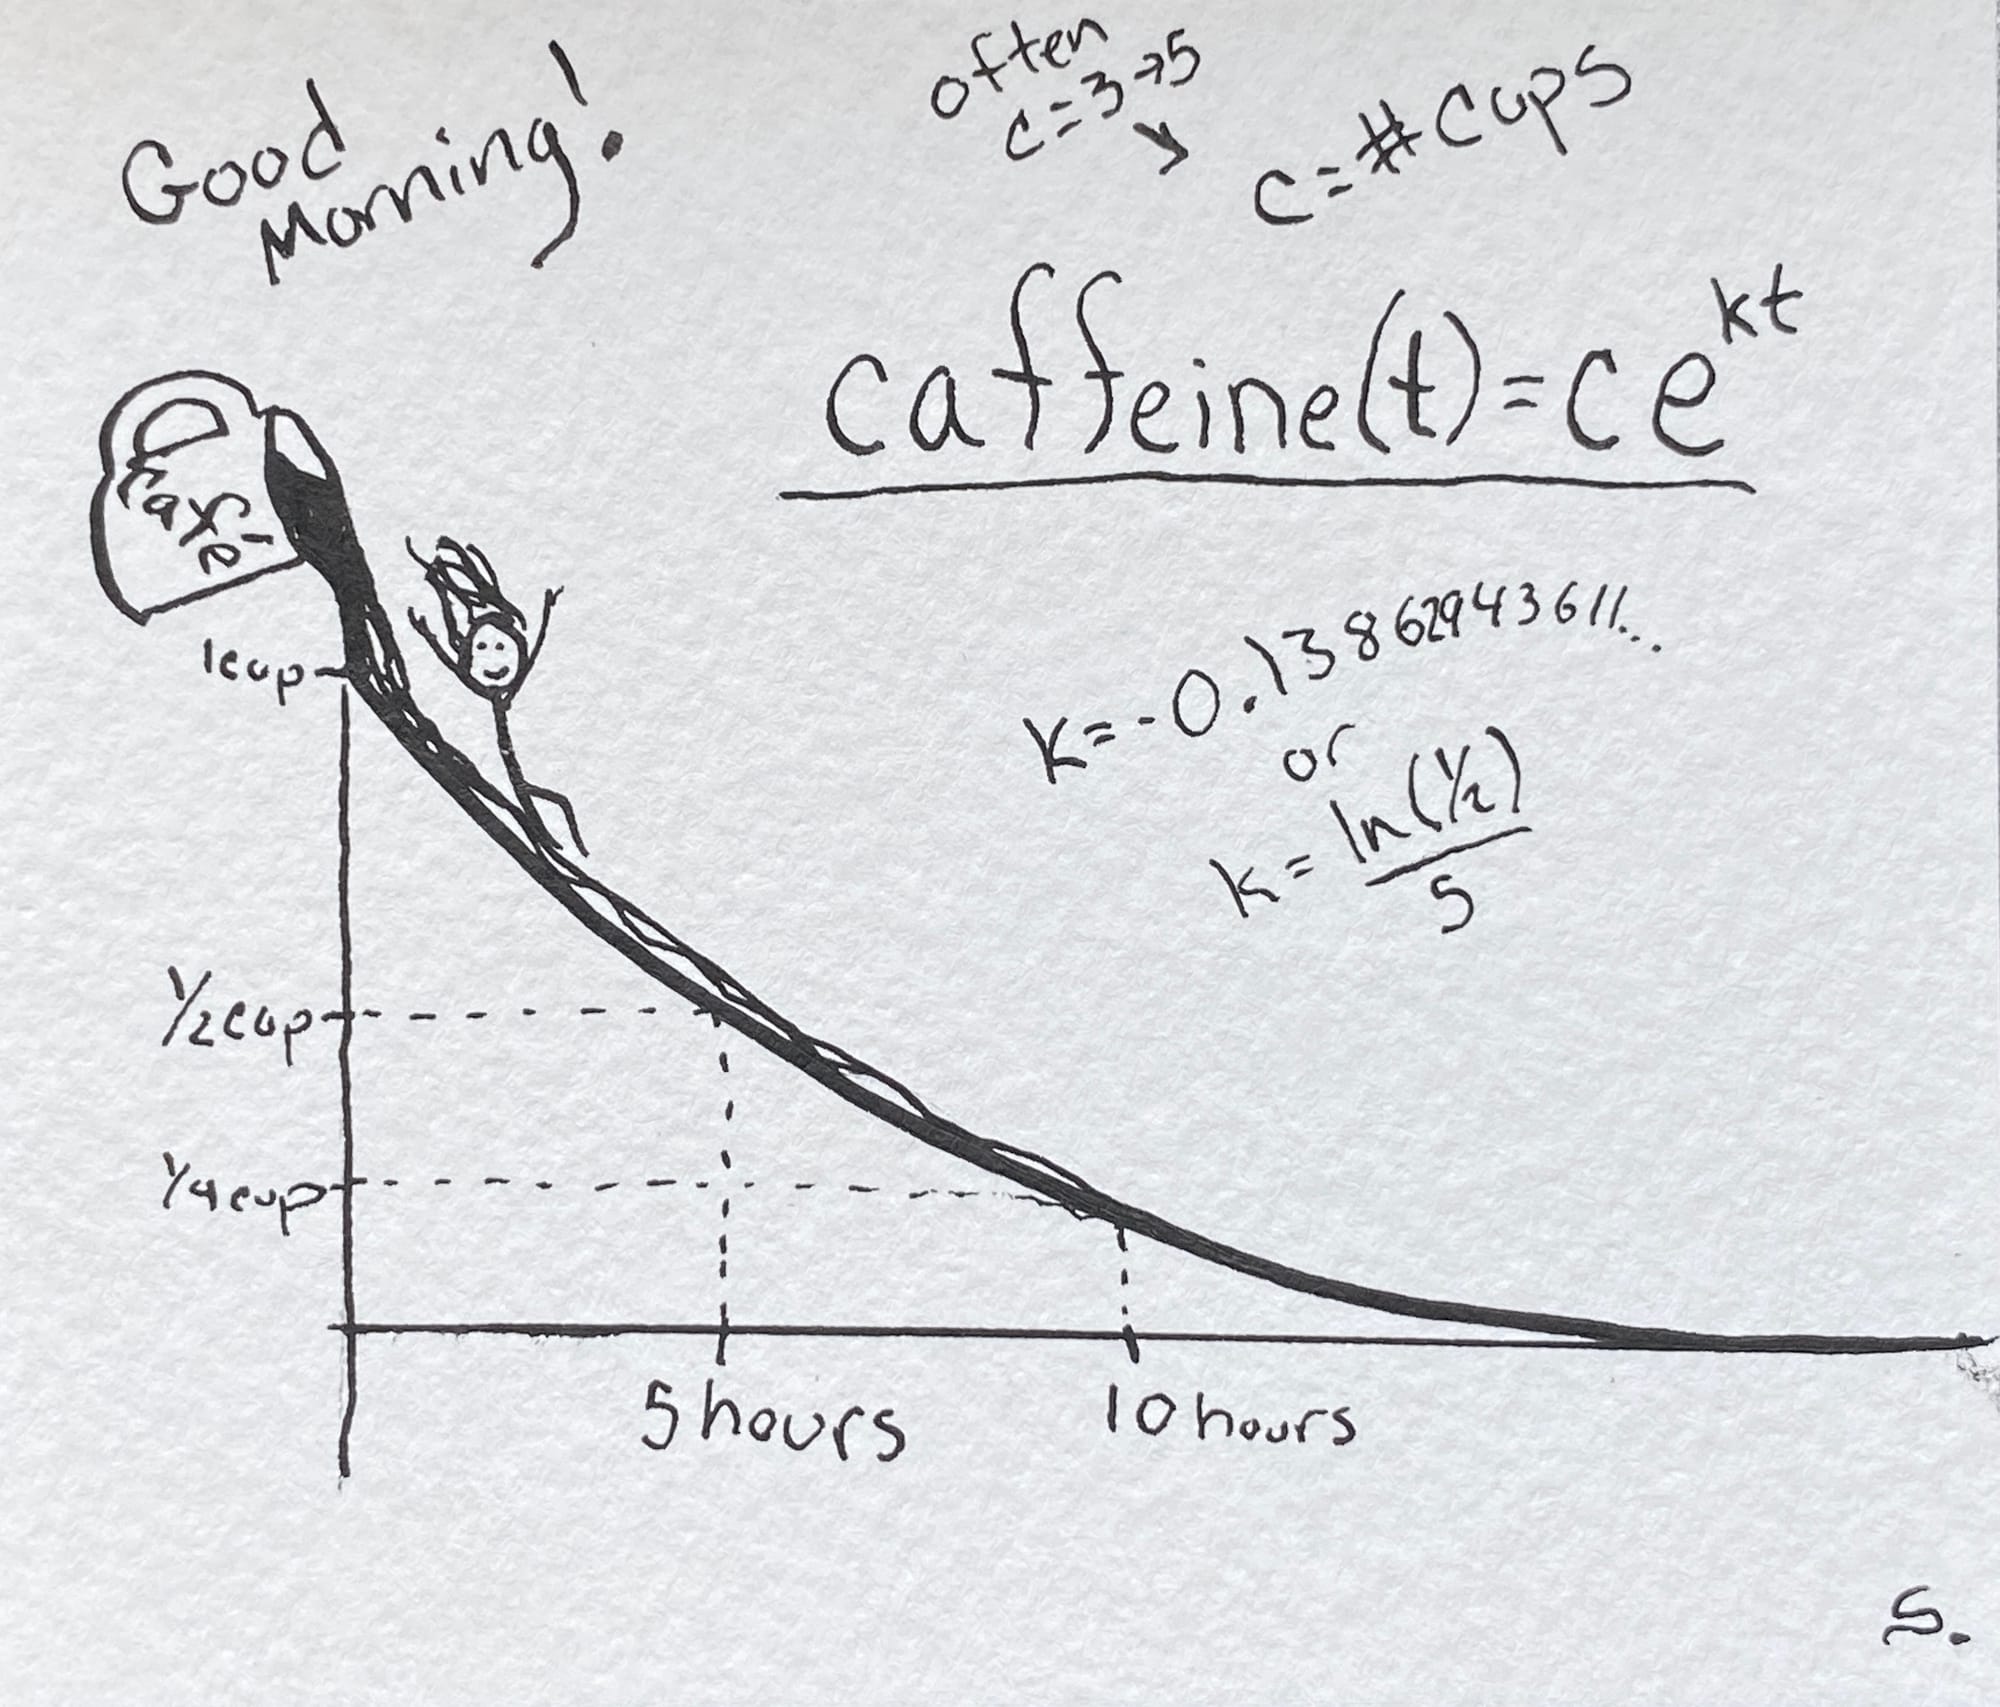 Good
Morning!
often
c=3→5
c=#cups
caffeine(t)=ce^kt
k=-0.13862943611...
or
k=ln(1/2)/5
1cup
1/2cup
1/4cup
5hours
10hours
S.